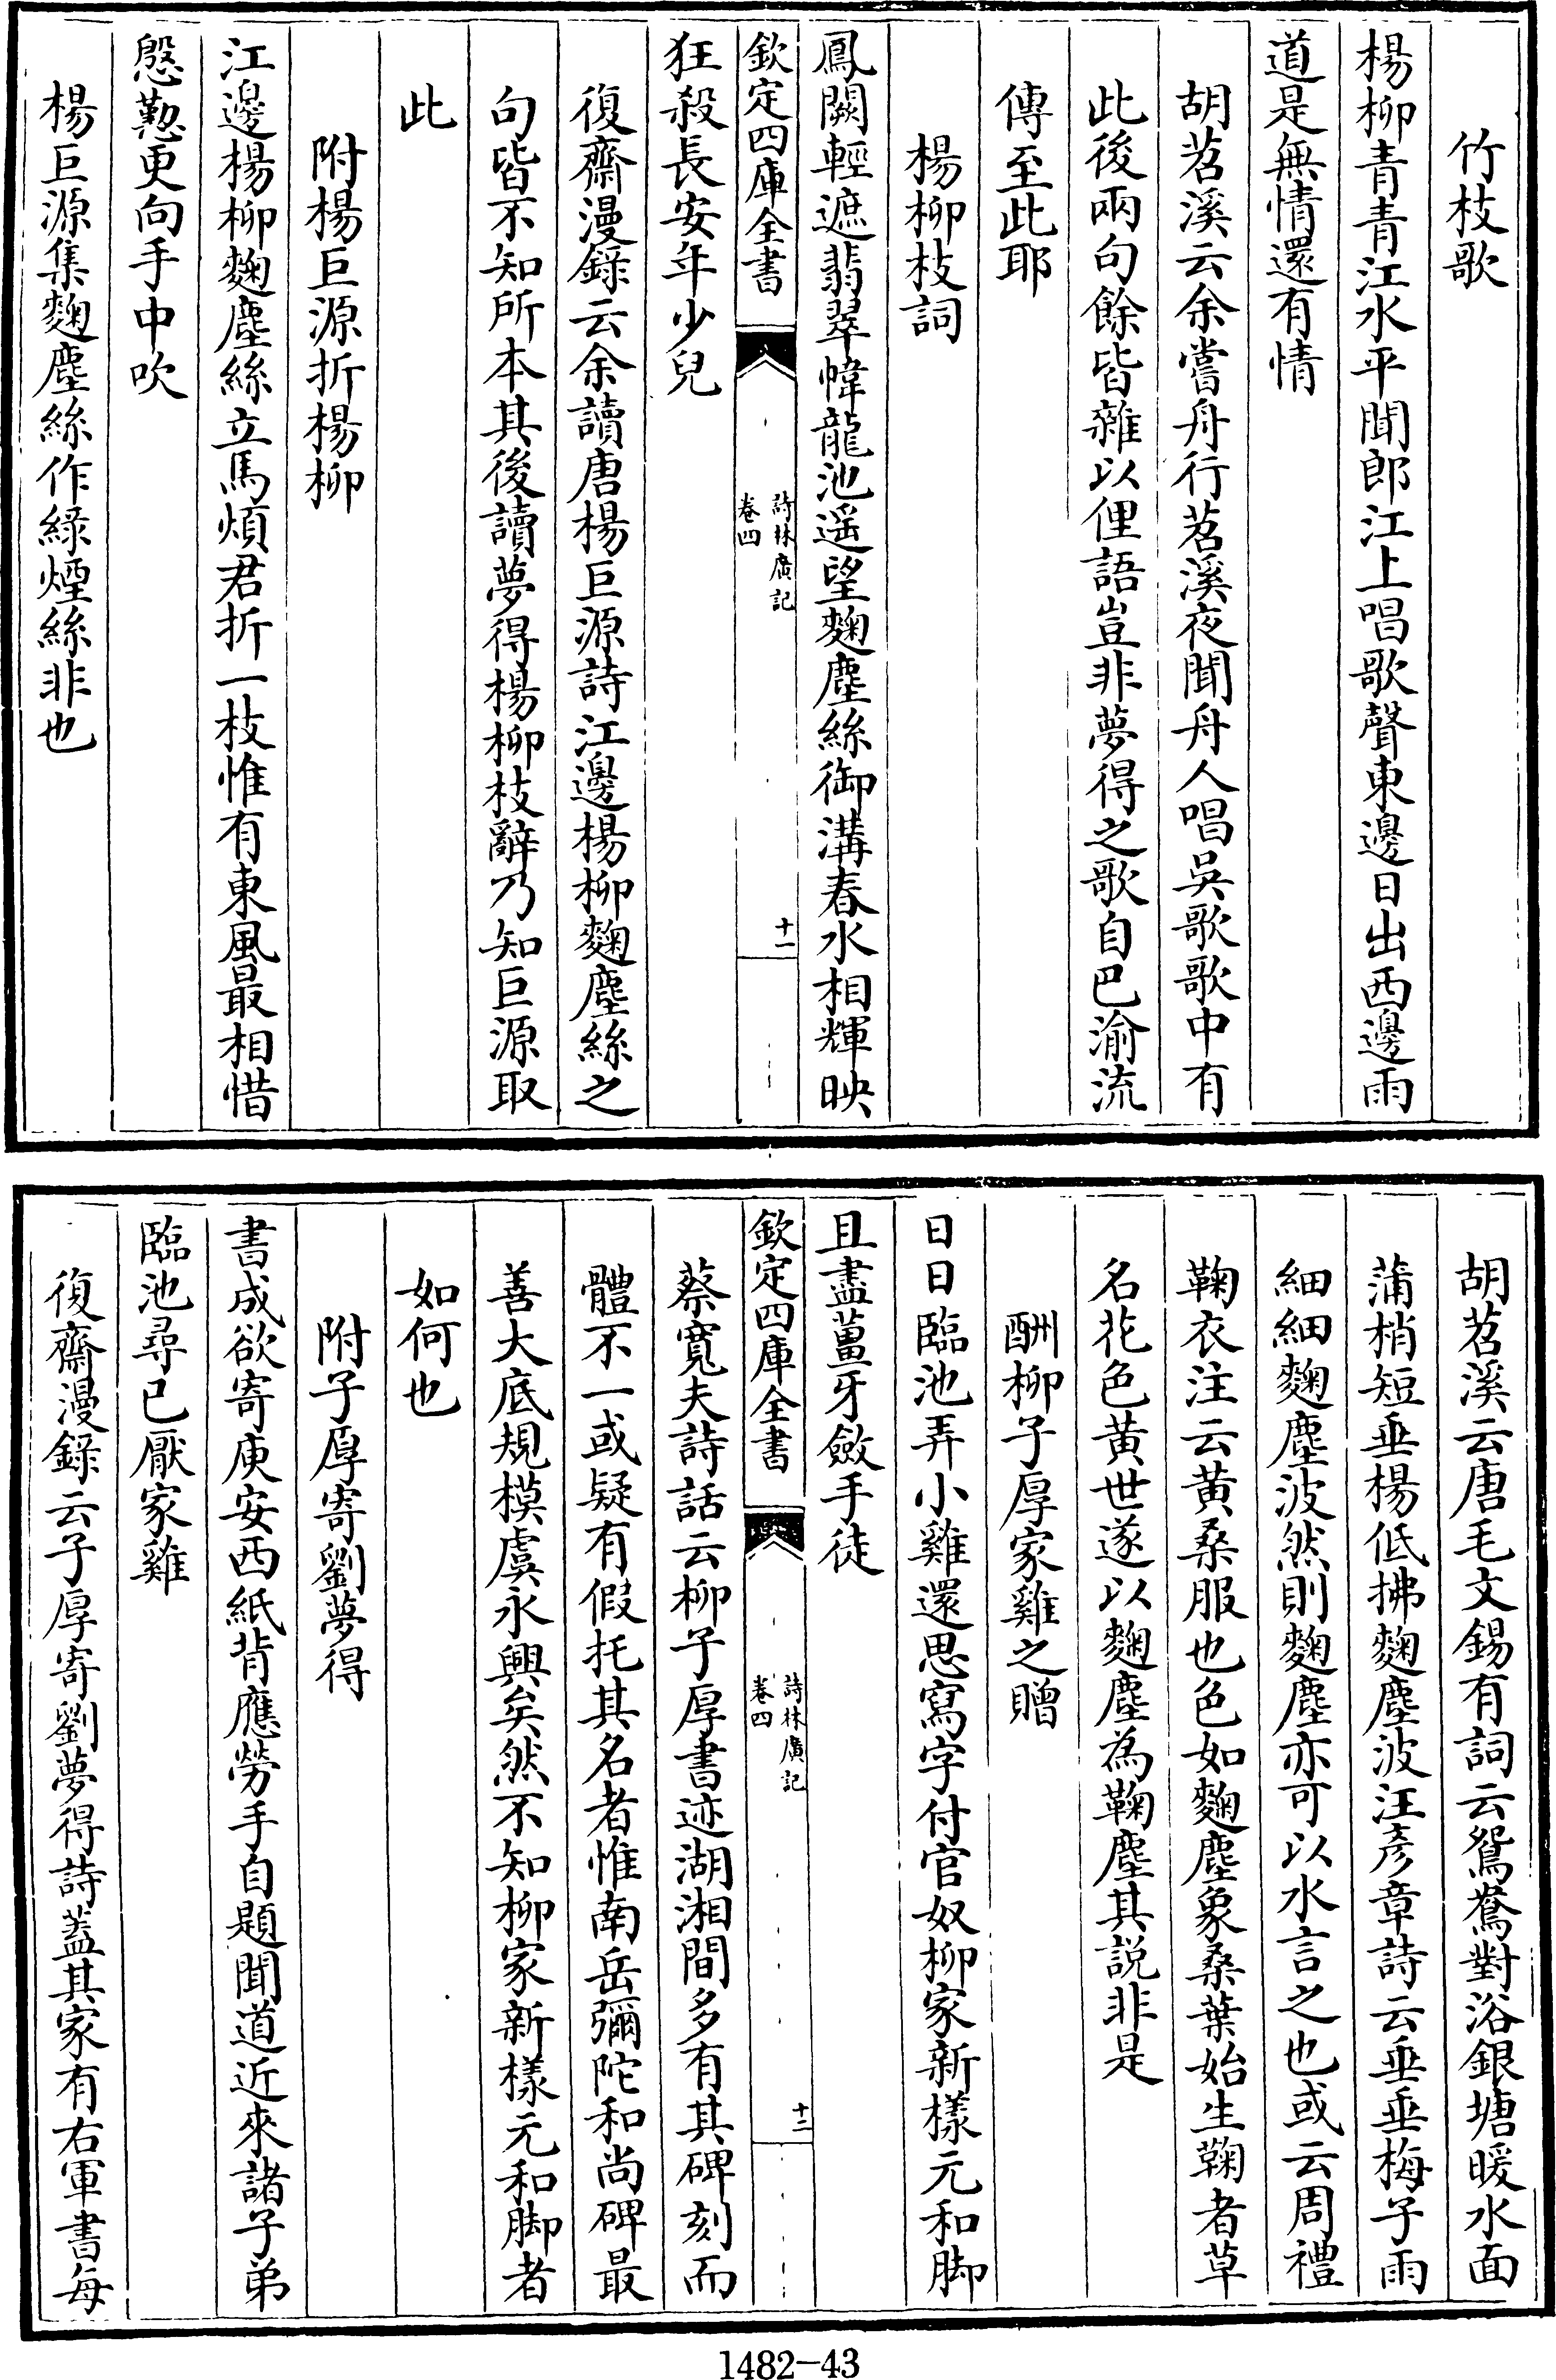 竹枝歌
楊柳青青江水平聞郎江上唱歌聲東邊日出西邊雨
道是無情還有情
胡苕溪云余嘗舟行苕溪夜聞舟人唱吳歌歌中有
此後兩句餘皆雜以俚語豈非夢得之歌自巴渝流
傳至此耶
楊柳枝詞
鳳闕輕遮翡翠幃龍池遥望麴塵絲御溝春水相輝映
欽定四庫全書
詩林廣記
卷四
十一
狂殺長安年少兒
復齋漫錄云余讀唐楊巨源詩江邊楊柳麴塵絲之
句皆不知所本其後讀夢得楊柳枝辭乃知巨源取
此
附楊巨源折楊柳
江邊楊柳麴塵絲立馬煩君折一枝惟有東風最相惜
慇懃更向手中吹
楊巨源集麴塵絲作綠煙絲非也
胡苕溪云唐毛文錫有詞云鴛鴦對浴銀塘暖水面
蒲梢短垂楊低拂麴塵波汪彥章詩云垂垂梅子雨
細細麴塵波然則麴塵亦可以水言之也或云周禮
鞠衣注云黄桑服也色如麴塵象桑葉始生鞠者草
名花色黄世遂以麴塵為鞠塵其説非是
酬柳子厚家雞之贈
日日臨池弄小雞還思寫字付官奴柳家新樣元和脚
且盡薑牙斂手徒
欽定四庫全書
詩林廣記
卷四
十二
蔡寬夫詩話云柳子厚書迹湖湘間多有其碑刻而
體不一或疑有假托其名者惟南岳彌陀和尚碑最
善大底規模虞永興矣然不知柳家新樣元和脚者
如何也
附子厚寄劉夢得
書成欲寄庾安西紙背應勞手自題聞道近來諸子弟
臨池尋已厭家雞
復齋漫錄云子厚寄劉夢得詩蓋其家有右軍書每
1482-43